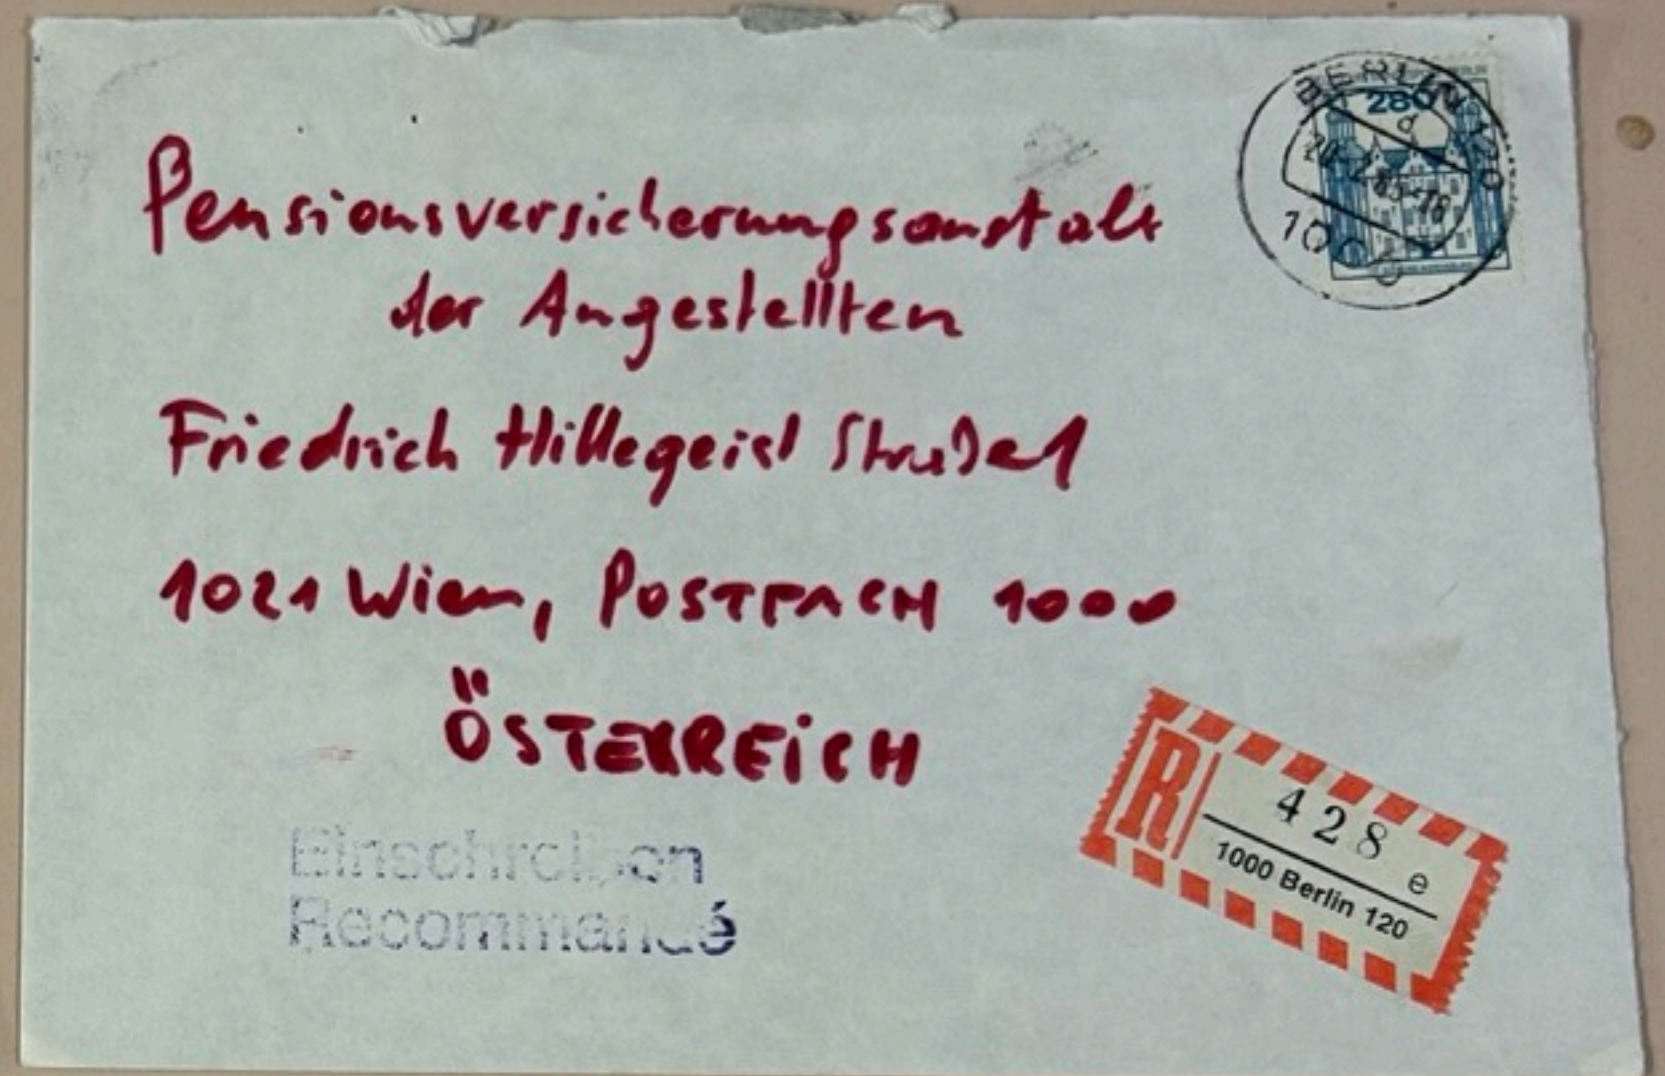 BERLIN 120
280
1000
Pensionsversicherungsanstalt
der Angestellten
Friedrich Hillegeist Straße 1
1021 Wien, POSTFACH 1000
ÖSTERREICH
Einschreiben
Recommandé
R
428
e
1000 Berlin 120